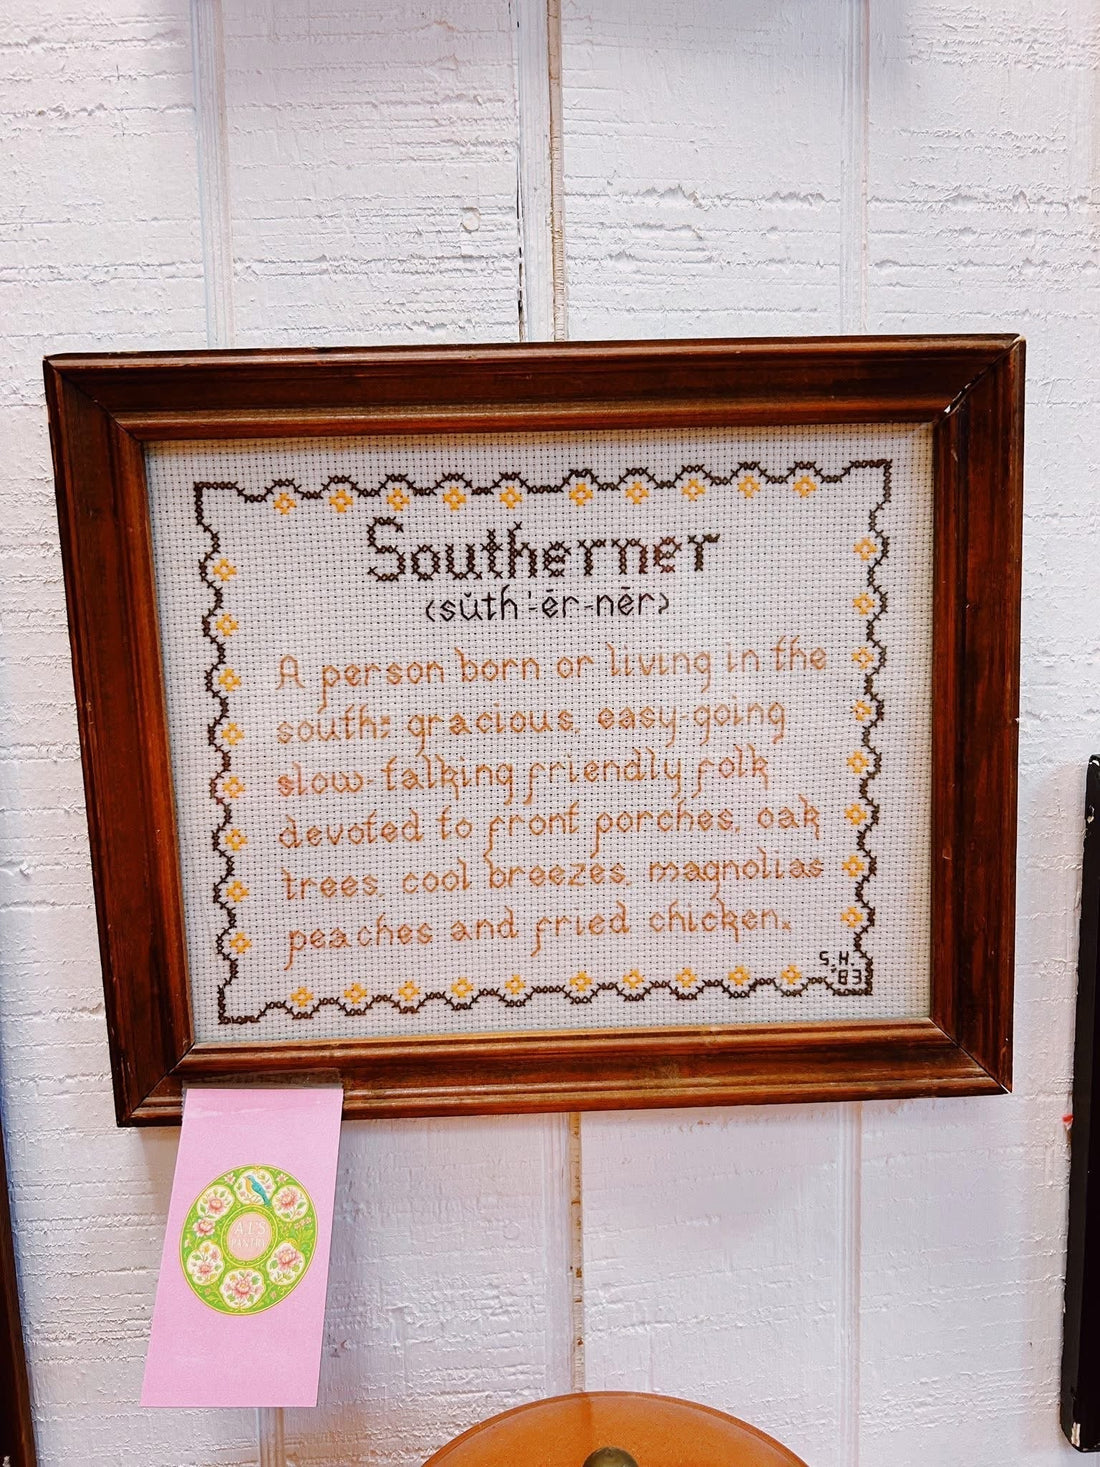 Southerner
(sŭth'-ēr-nēr)
A person born or living in the
south: gracious, easy-going
slow-talking friendly folk
devoted to front porches, oak
trees, cool breezes, magnolias
peaches and fried chicken.
S.H.
'83
A.J.'S
PANTRY